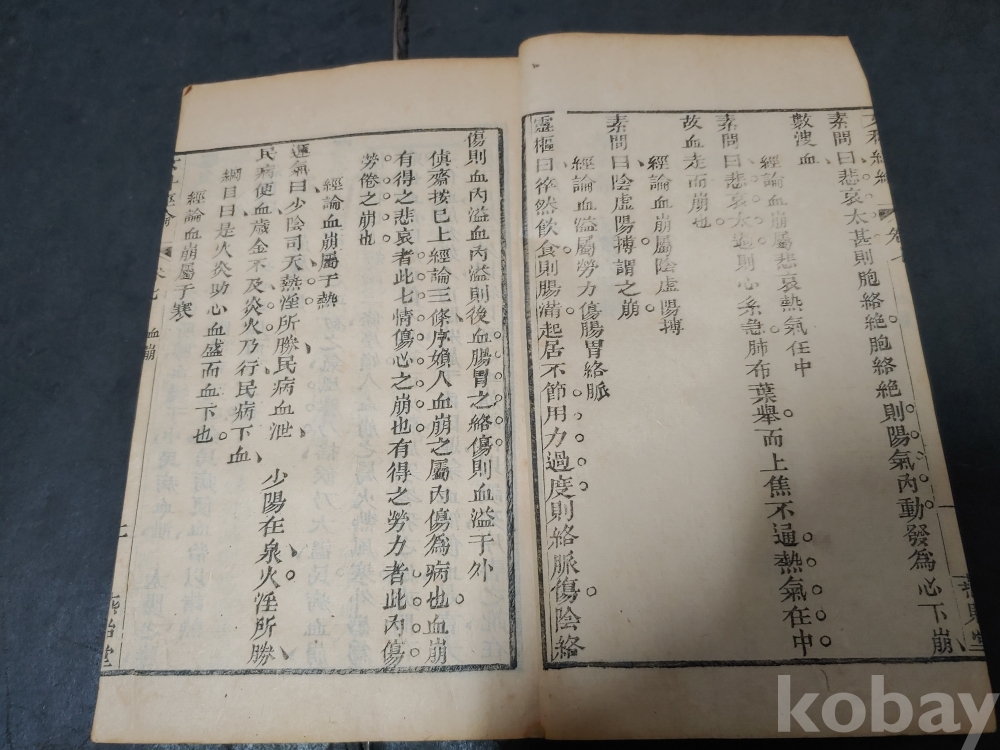 素問曰悲哀太甚則胞絡絕胞絡絕則陽氣內動發爲心下崩
數溲血
經論血崩屬悲哀熱氣在中
素問曰悲哀太過則心系急肺布葉舉而上焦不通熱氣在中
故血走而崩也
經論血崩屬陰虛陽搏
素問曰陰虛陽搏謂之崩
經論血溢屬勞力傷腸胃絡脈
靈樞曰卒然飲食則腸滿起居不節用力過度則絡脈傷陰絡
傷則血內溢血內溢則後血腸胃之絡傷則血溢于外
慎齋按已上經論三條序婦人血崩之屬內傷爲病也血崩
有得之悲哀者此七情傷心之崩也有得之勞力者此內傷
勞倦之崩也
經論血崩屬于熱
運氣曰少陰司天熱淫所勝民病血泄 少陽在泉火淫所勝
民病便血歲金不及炎火乃行民病下血
綱目曰是火炎助心血盛而血下也
經論血崩屬于寒
血崩
kobay